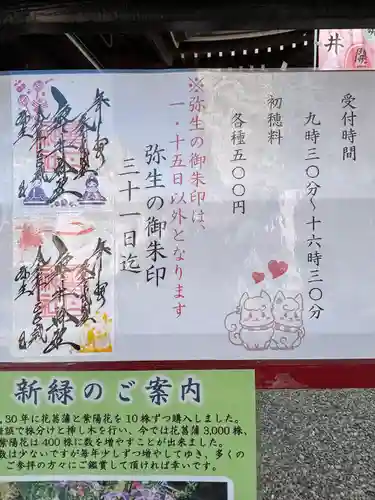 受付時間
九時三〇分〜十六時三〇分
初穂料
各種五〇〇円
※弥生の御朱印は、
一・十五日以外となります
弥生の御朱印
三十一日迄
新緑のご案内
30年に花菖蒲と紫陽花を10株ずつ購入しました。
株分けと挿し木を行い、今では花菖蒲3,000株、
紫陽花は400株に数を増やすことが出来ました。
数は少ないですが毎年少しずつ増やしてゆき、多くの
ご参拝の方々にご鑑賞して頂ければ幸いです。